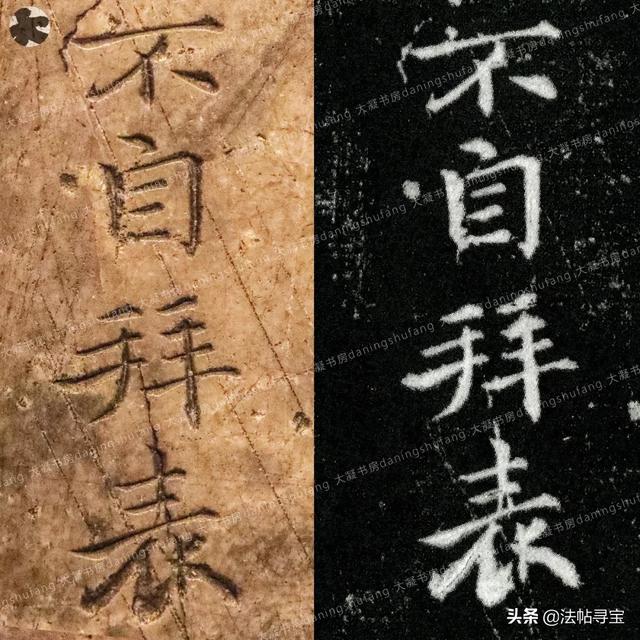 不自拜表
不自拜表
大寧书房daningshufang
头条 @法帖寻宝